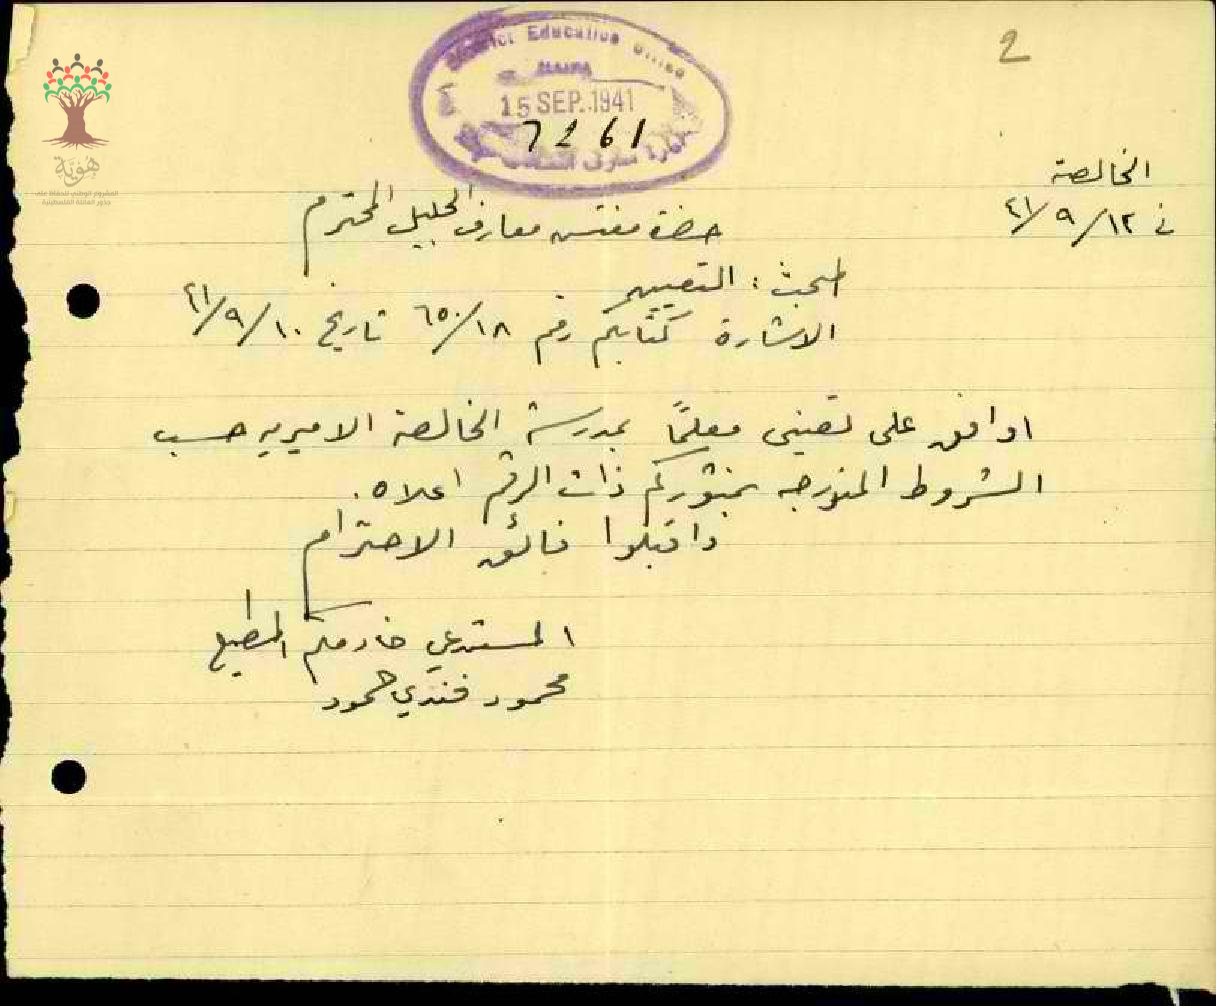 2
District Education Office
HAIFA
15 SEP. 1941
7261
هُويّة
المشروع الوطني للحفاظ على
جذور العائلة الفلسطينية
الخالصة
في ١٢/٩/٤١
حضرة مفتش معارف الجليل المحترم
المبحث : التعيين
الاشارة كتابكم رقم ٦٥٠/١٨ تاريخ ١٠/٩/٤١
اوافق على تعييني معلمًا بمدرسة الخالصة الاميريه حسب
الشروط المندرجه بمنشوركم ذات الرقم اعلاه .
واقبلوا فائق الاحترام
المستدعي خادمكم المطيع
محمود فندي حمود